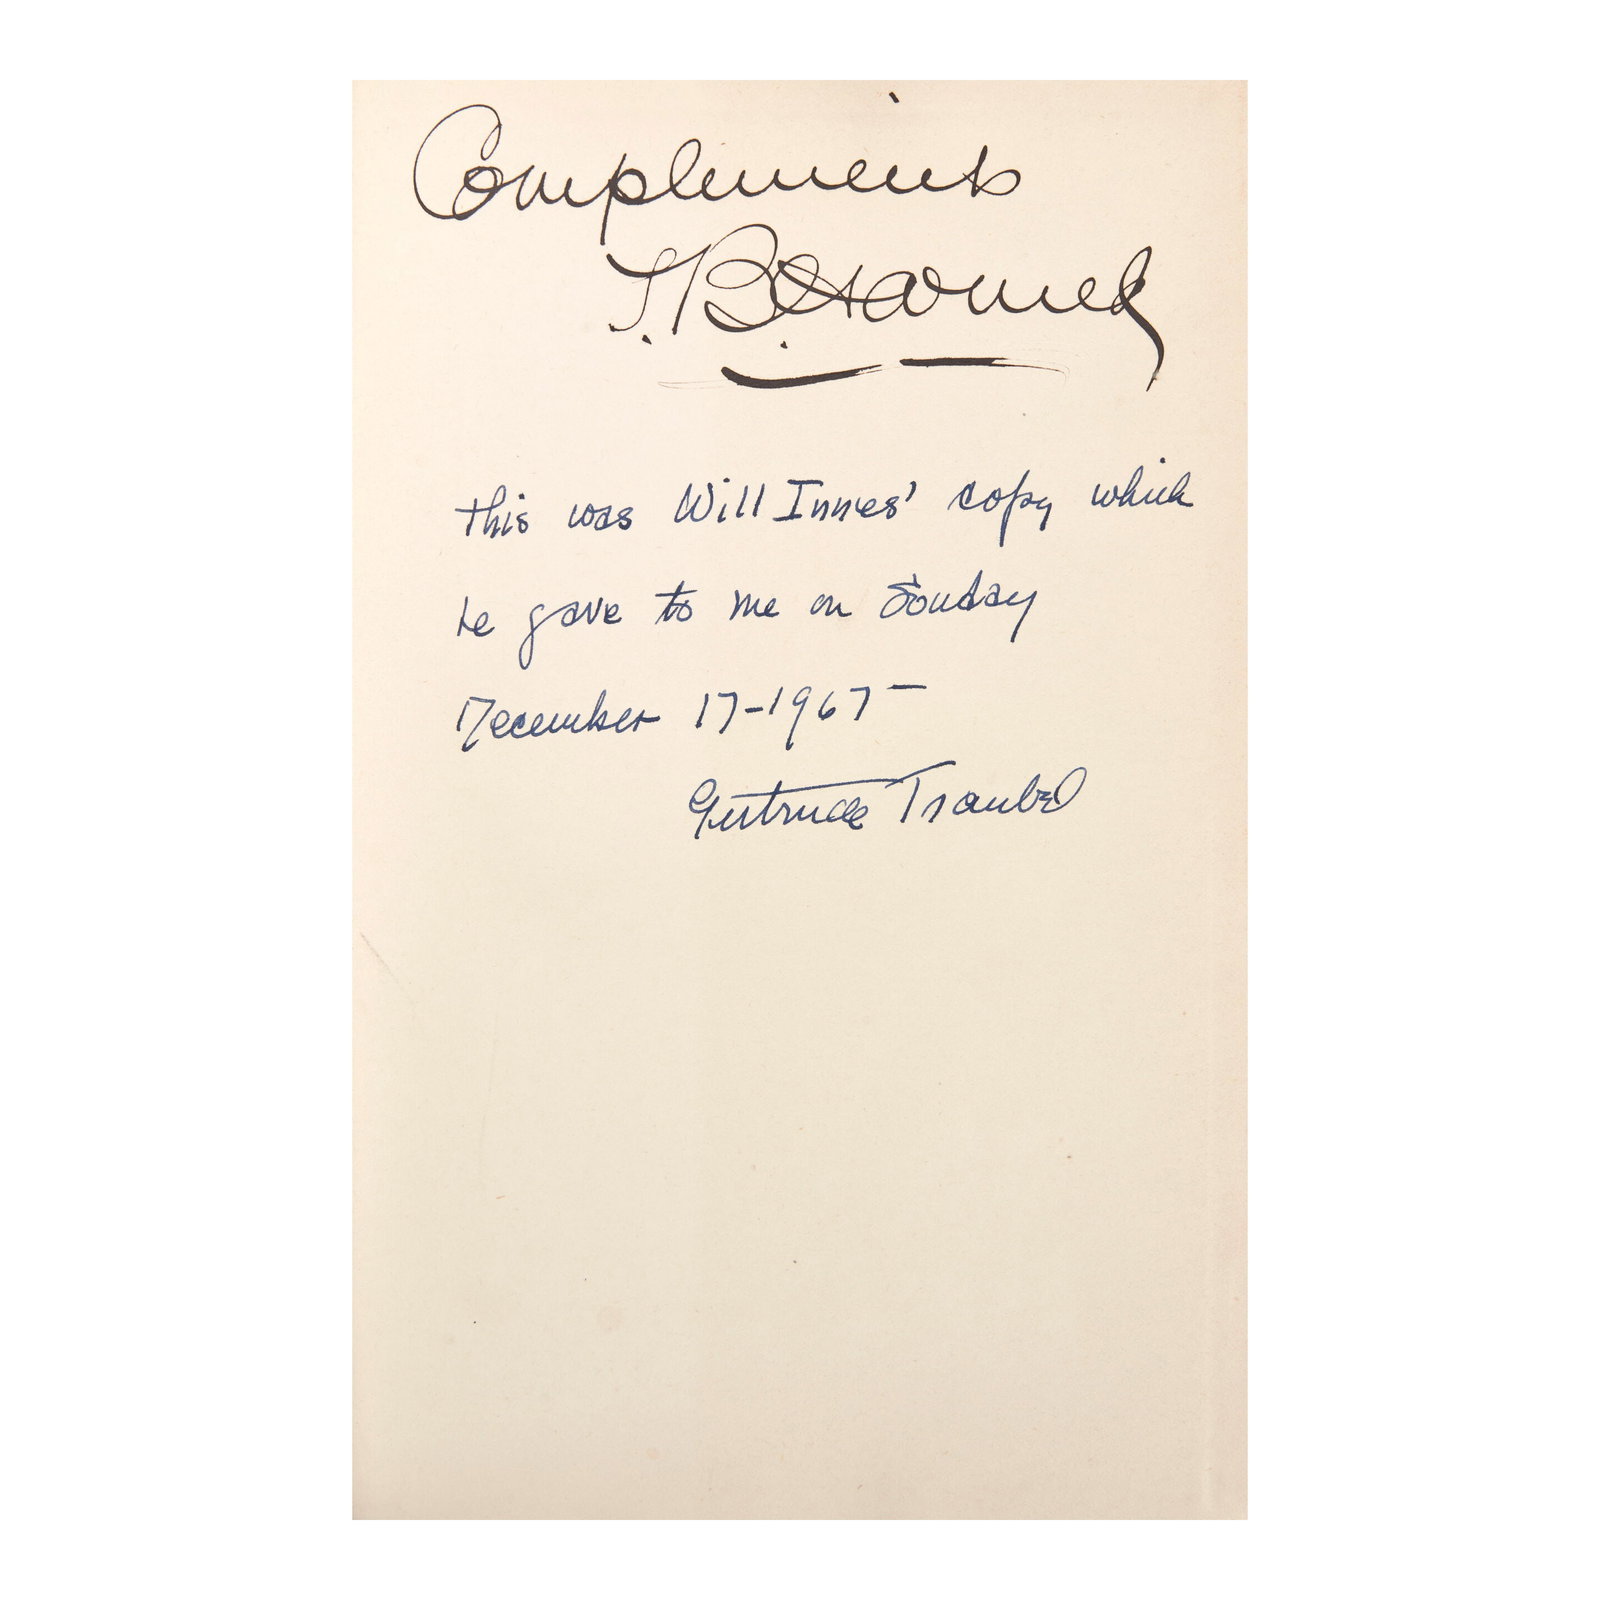 Compliments
T. B. Harned
this was Will Innes' copy which
he gave to me on Sunday
December 17-1967-
Gertrude Traubel